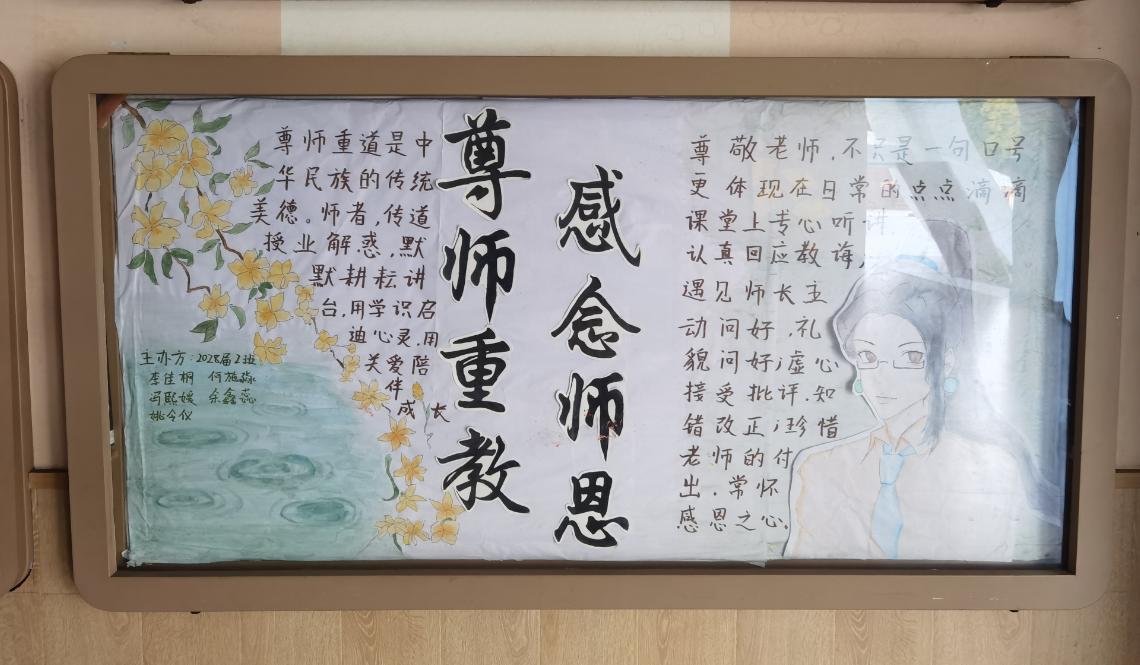 尊师重道是中
华民族的传统
美德。师者,传道
授业解惑,默
默耕耘讲
台,用学识启
迪心灵,用
关爱陪
伴
成长
主办方:2028届2班
李佳桐 何施淼
冯熙媛 余鑫蕊
姚令仪
尊师重教
感念师恩
尊敬老师,不只是一句口号
更体现在日常的点点滴滴
课堂上专心听讲
认真回应教诲,
遇见师长主
动问好,礼
貌问好;虚心
接受批评,知
错改正;珍惜
老师的付
出,常怀
感恩之心。